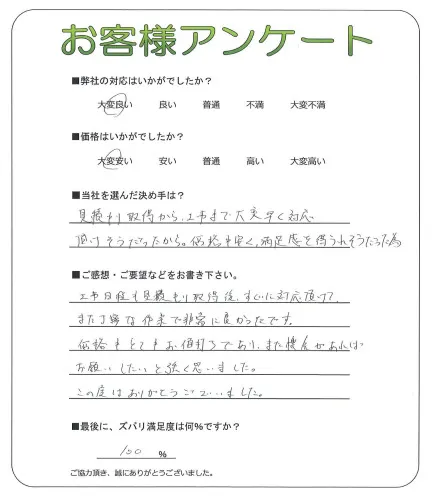 お客様アンケート
■弊社の対応はいかがでしたか？
大変良い 良い 普通 不満 大変不満
■価格はいかがでしたか？
大変安い 安い 普通 高い 大変高い
■当社を選んだ決め手は？
見積もり取得から、工事まで大変早く対応
頂けそうだったから。価格も安く、満足感を得られそうだった為
■ご感想・ご要望などをお書き下さい。
工事日程も見積もり取得後、すぐに対応頂けて、
また丁寧な作業で非常に良かったです。
価格もとてもお値打ちであり、また機会があれば
お願いしたいと強く思いました。
この度はありがとうございました。
■最後に、ズバリ満足度は何%ですか？
100 %
ご協力頂き、誠にありがとうございました。